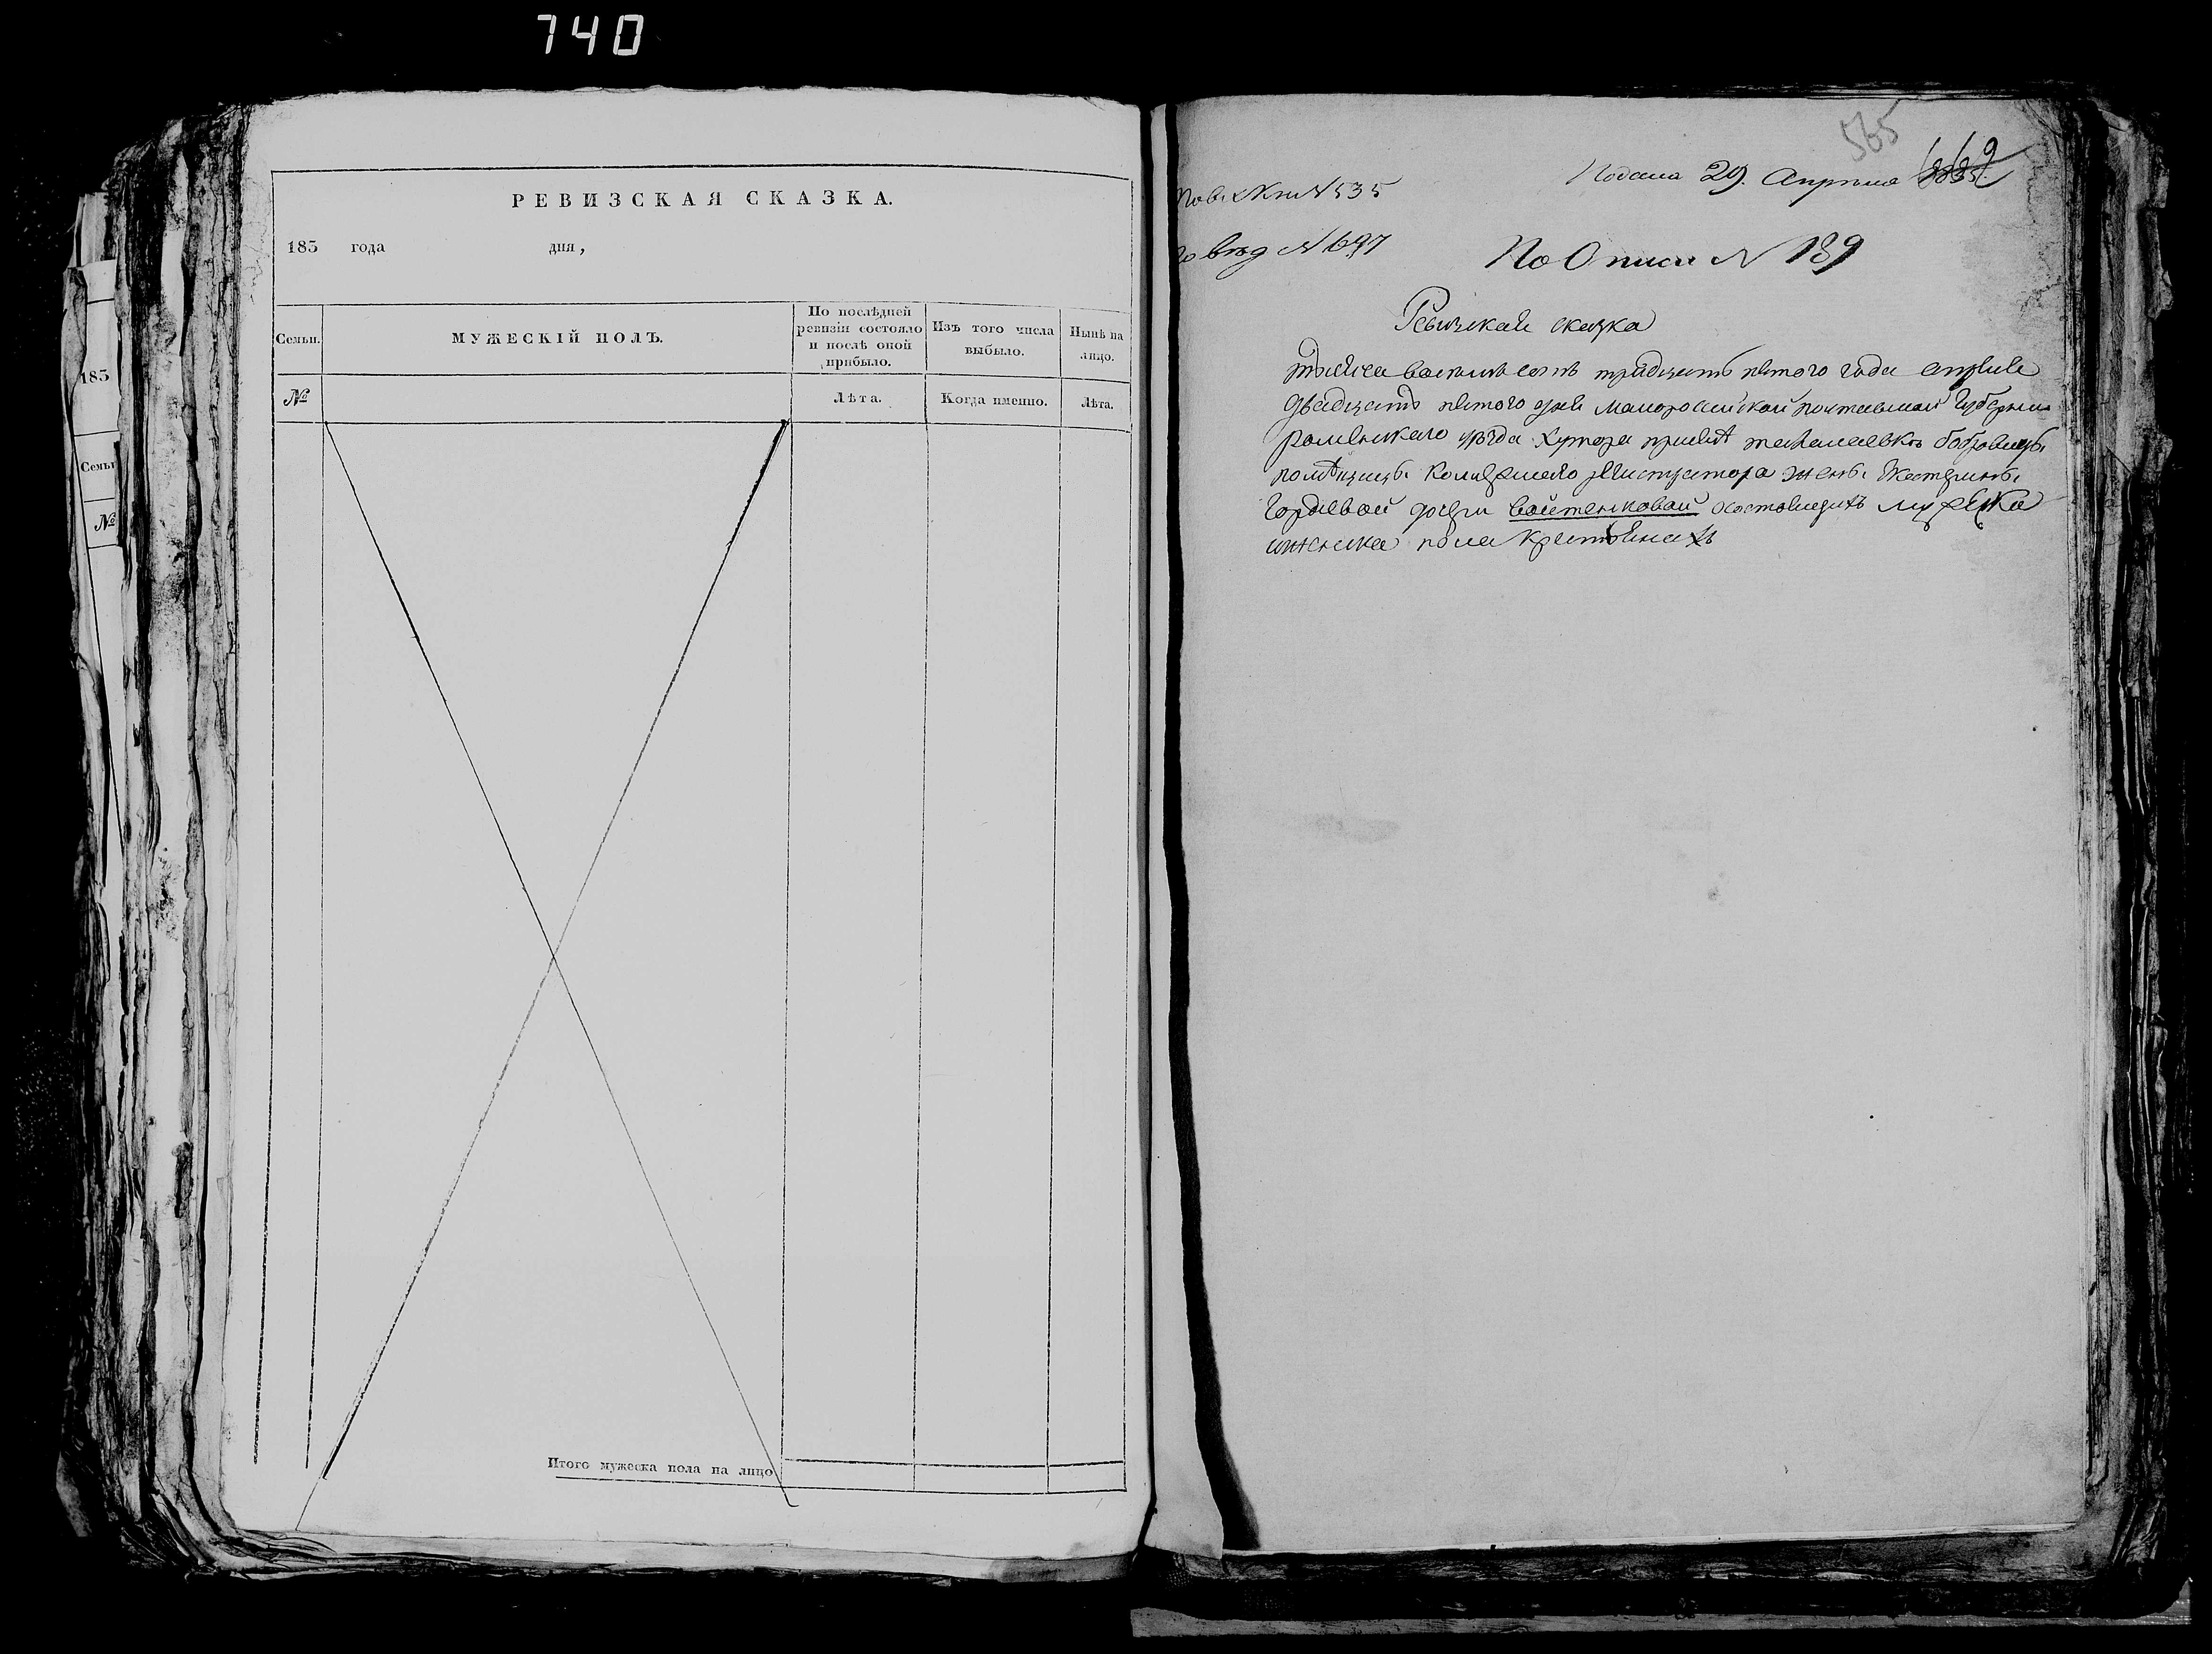 740
РЕВИЗСКАЯ СКАЗКА.
183 года дня,
Семьи.
МУЖЕСКІЙ ПОЛЪ.
По послѣдней ревизіи состояло и послѣ оной прибыло.
Изъ того числа выбыло.
Нынѣ на лицо.
№
Лѣта.
Когда именно.
Лѣта.
Итого мужеска пола на лицо
183
Семьи
№
565
Подана 29. Апрѣля
№ 535
№ 697
По Описи № 139
Ревизская сказка
тысяча восемь сотъ тридцать пятого года апреля
двадцать пятого дня малоросийской полтавской губернии
роменского уѣзда хутора
помѣщицы колежского регистратора жены
гордѣевой дочери войтенковой состоящихъ мужеска
и женска пола крестьянахъ